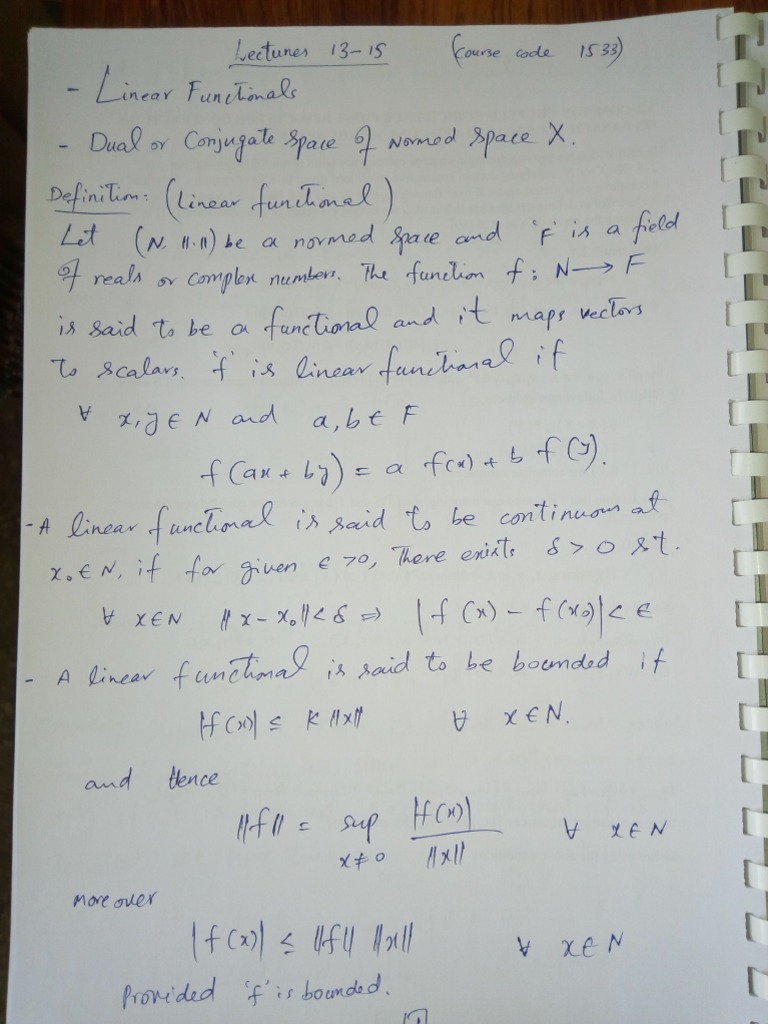 Lectures 13-15 (Course code 1533)
- Linear Functionals
- Dual or Conjugate Space of Normed Space X.
Definition: (Linear functional)
Let (N, ||·||) be a normed space and 'F' is a field
of reals or complex numbers. The function f: N → F
is said to be a functional and it maps vectors
to scalars. 'f' is linear functional if
∀ x, y ∈ N and a, b ∈ F
f(ax + by) = a f(x) + b f(y).
- A linear functional is said to be continuous at
x₀ ∈ N, if for given ε > 0, There exists δ > 0 s.t.
∀ x ∈ N ||x - x₀|| < δ ⇒ |f(x) - f(x₀)| < ε
- A linear functional is said to be bounded if
|f(x)| ≤ K ||x|| ∀ x ∈ N.
and Hence
||f|| = sup |f(x)| ∀ x ∈ N
x≠0 ||x||
moreover
|f(x)| ≤ ||f|| ||x|| ∀ x ∈ N
Provided 'f' is bounded.